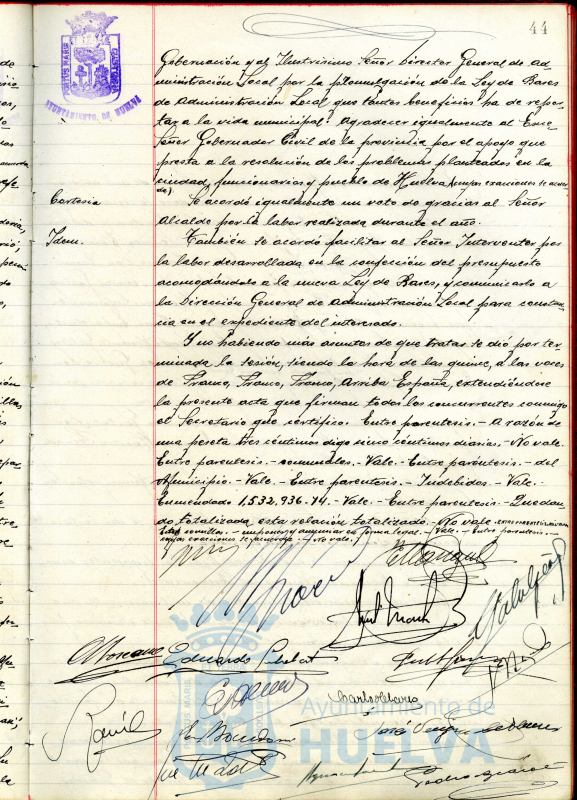 44
AYUNTAMIENTO, DE HUELVA
Gobernación y al Ilustrísimo Señor Director General de Ad-
ministración Local por la promulgación de la Ley de Bases
de Administración Local que tantos beneficios ha de repor-
tar a la vida municipal. Agradecer igualmente al Exc.
Señor Gobernador Civil de la provincia por el apoyo que
presta a la resolución de los problemas planteados en la
ciudad, funcionarios y pueblo de Huelva
Cortesia
Se acordó igualmente un voto de gracias al Señor
Alcalde por la labor realizada durante el año.
Idem.
También se acordó facilitar al Señor Interventor por
la labor desarrollada en la confección del presupuesto
acomodándolo a la nueva Ley de Bases, y comunicarlo a
la Dirección General de Administración Local para constan-
cia en el expediente del interesado.
Y no habiendo más asuntos de que tratar se dió por ter-
minada la sesión, siendo la hora de las quince, a las voces
de Franco, Franco, Franco, Arriba España, extendiéndose
la presente acta que firman todos los concurrentes conmigo
el Secretario que certifico. Entre parentesis.- A razón de
una peseta tres céntimos digo cinco céntimos diarios.- No vale.
Entre parentesis.- comunales.- Vale.- Entre paréntesis.- del
Municipio.- Vale.- Entre parentesis.- Indebidos.- Vale.
Enmendado 1,532,936.74.- Vale.- Entre parentesis.- Quedan-
do totalizada esta relación totalizado.- No vale
en forma legal.- Vale.- Entre parentesis.-
No vale.
Eduardo
Carlos
José
Pedro
Ayuntamiento de
HUELVA